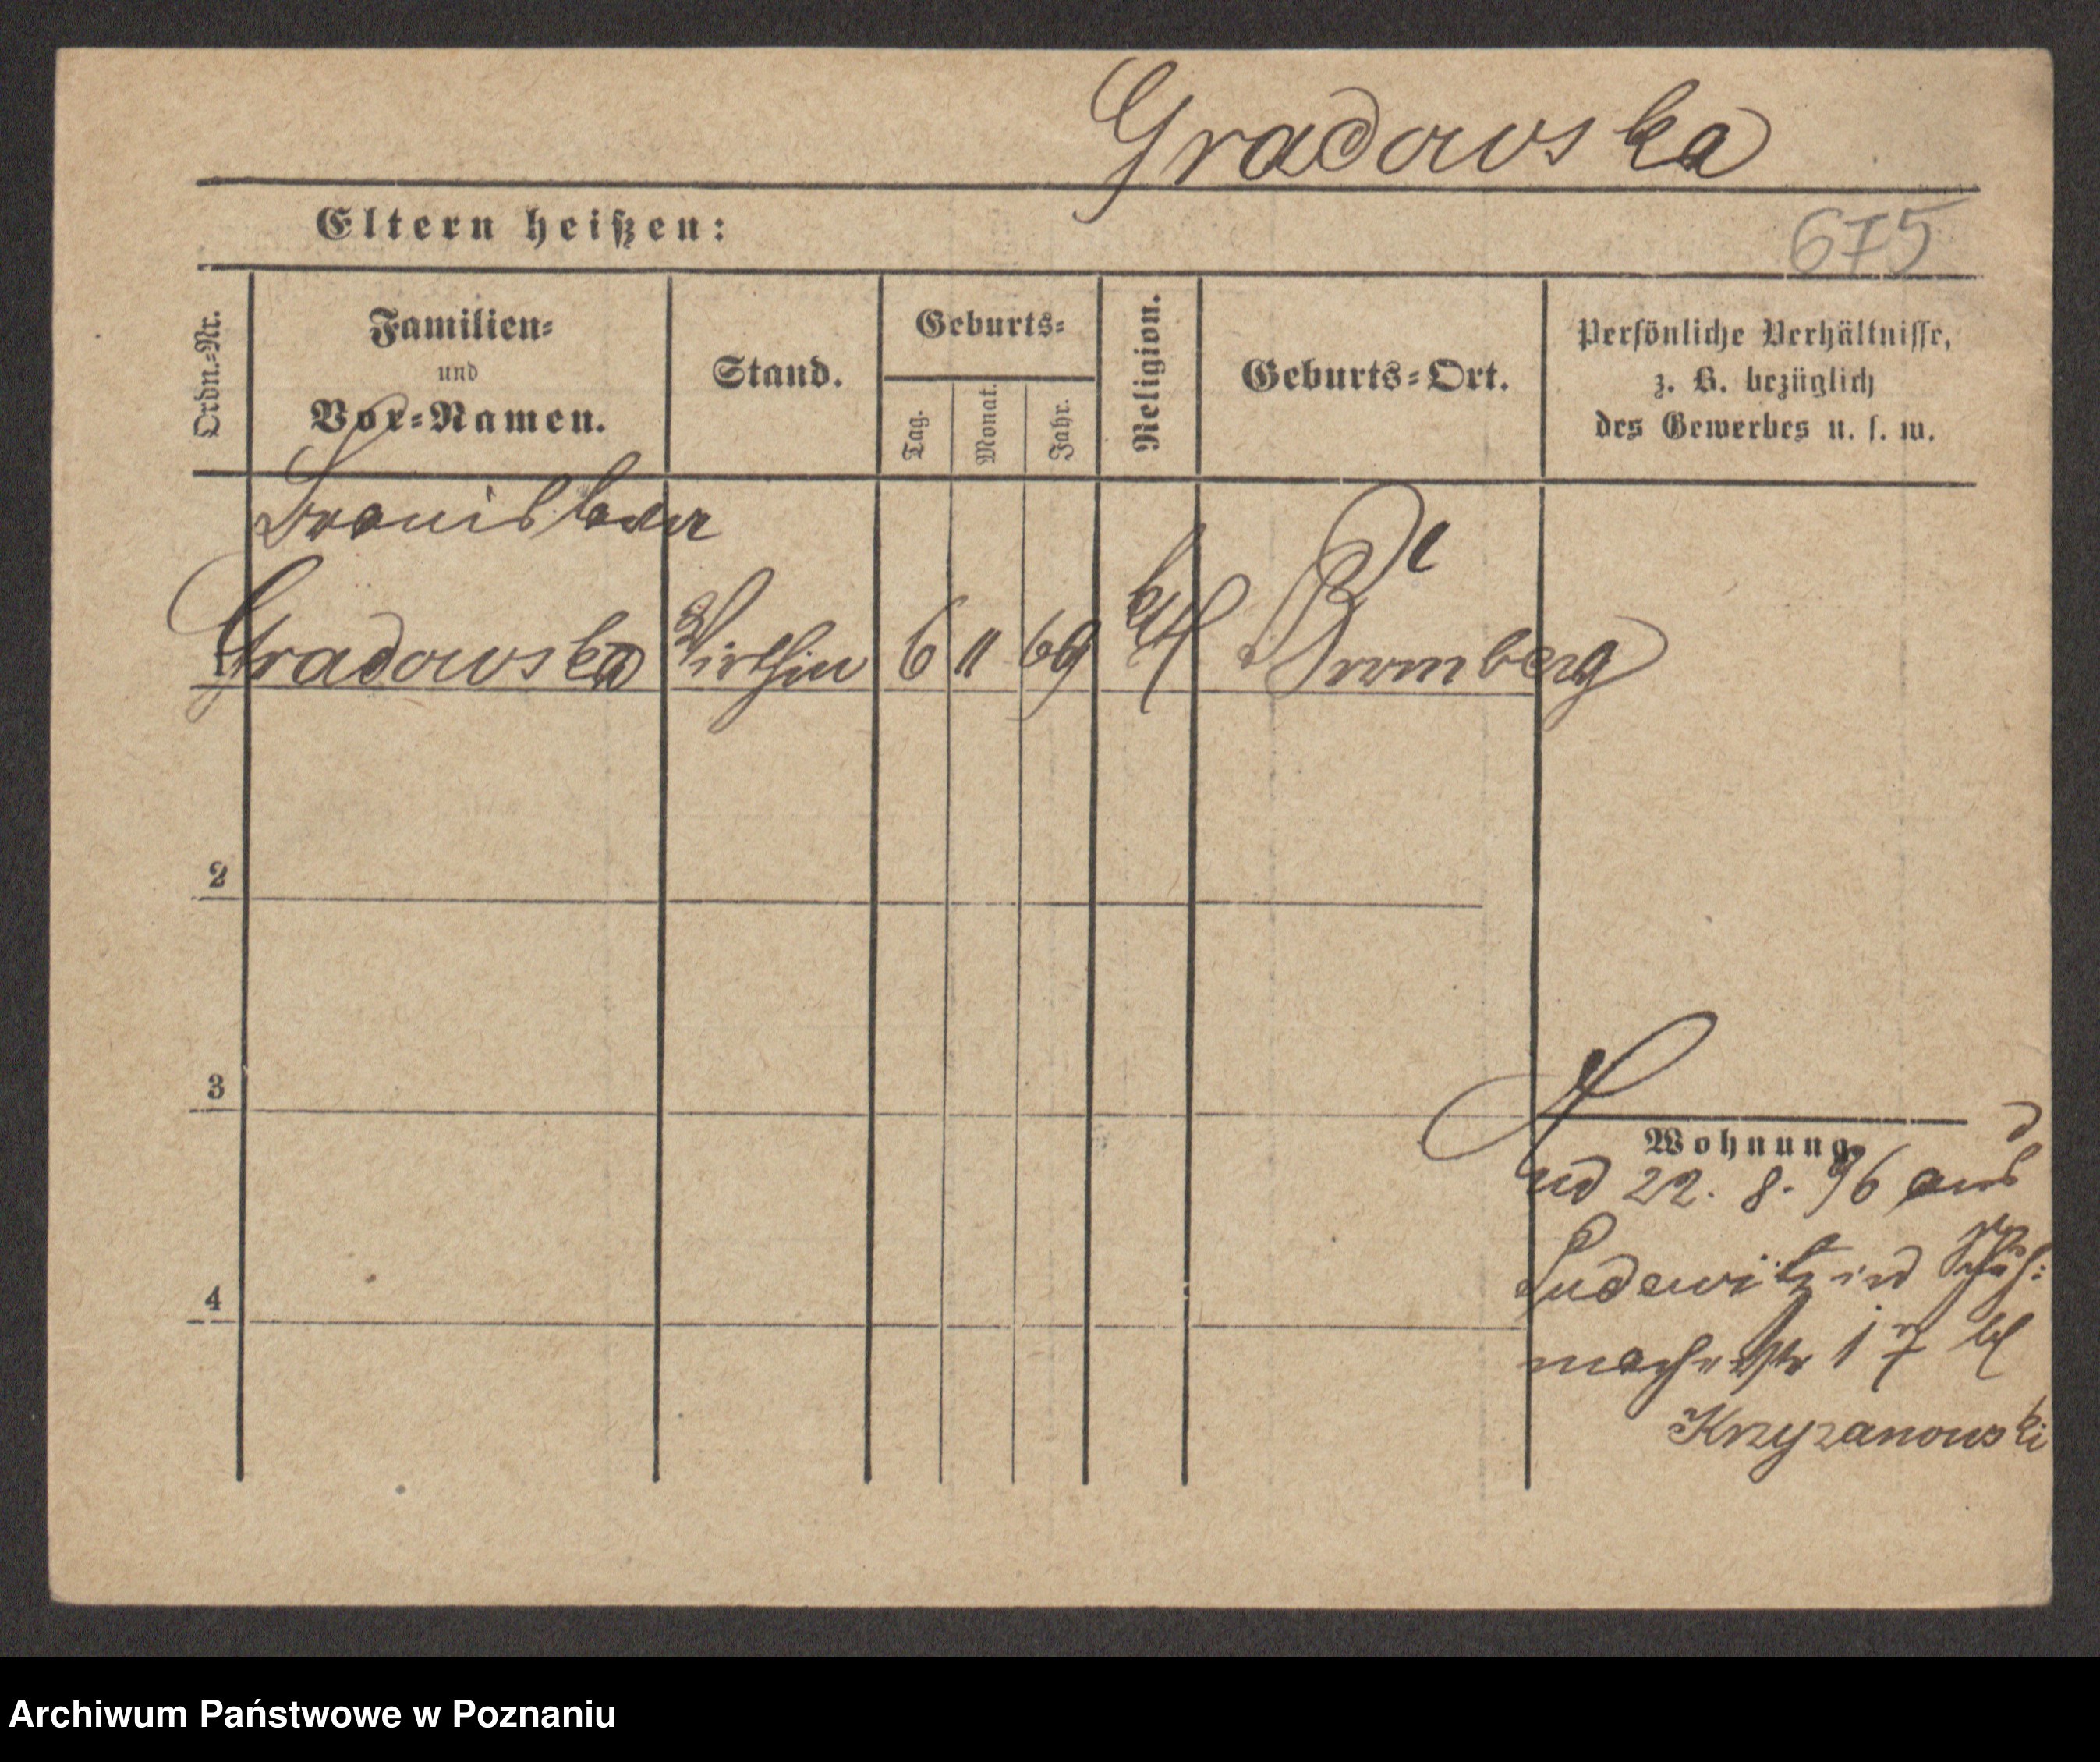 Gradowska
Eltern heißen:
675
Ordn.-Nr.
Familien-
und
Vor-Namen.
Stand.
Geburts-
Tag.
Monat.
Jahr.
Religion.
Geburts-Ort.
Persönliche Verhältnisse,
z. B. bezüglich
des Gewerbes u. s. w.
Bronislawa
Gradowska Wirthin 6 11 69 kath Bromberg
2
3
4
Wohnung.
22. 8. 96 aus
Schuh-
macherstr 17 bl
Krzyzanowski
Archiwum Państwowe w Poznaniu